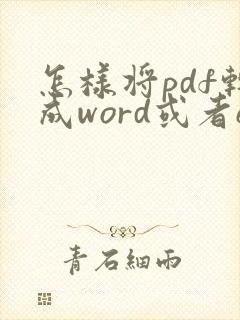 怎樣將pdf轉
成word或者e
青石細雨